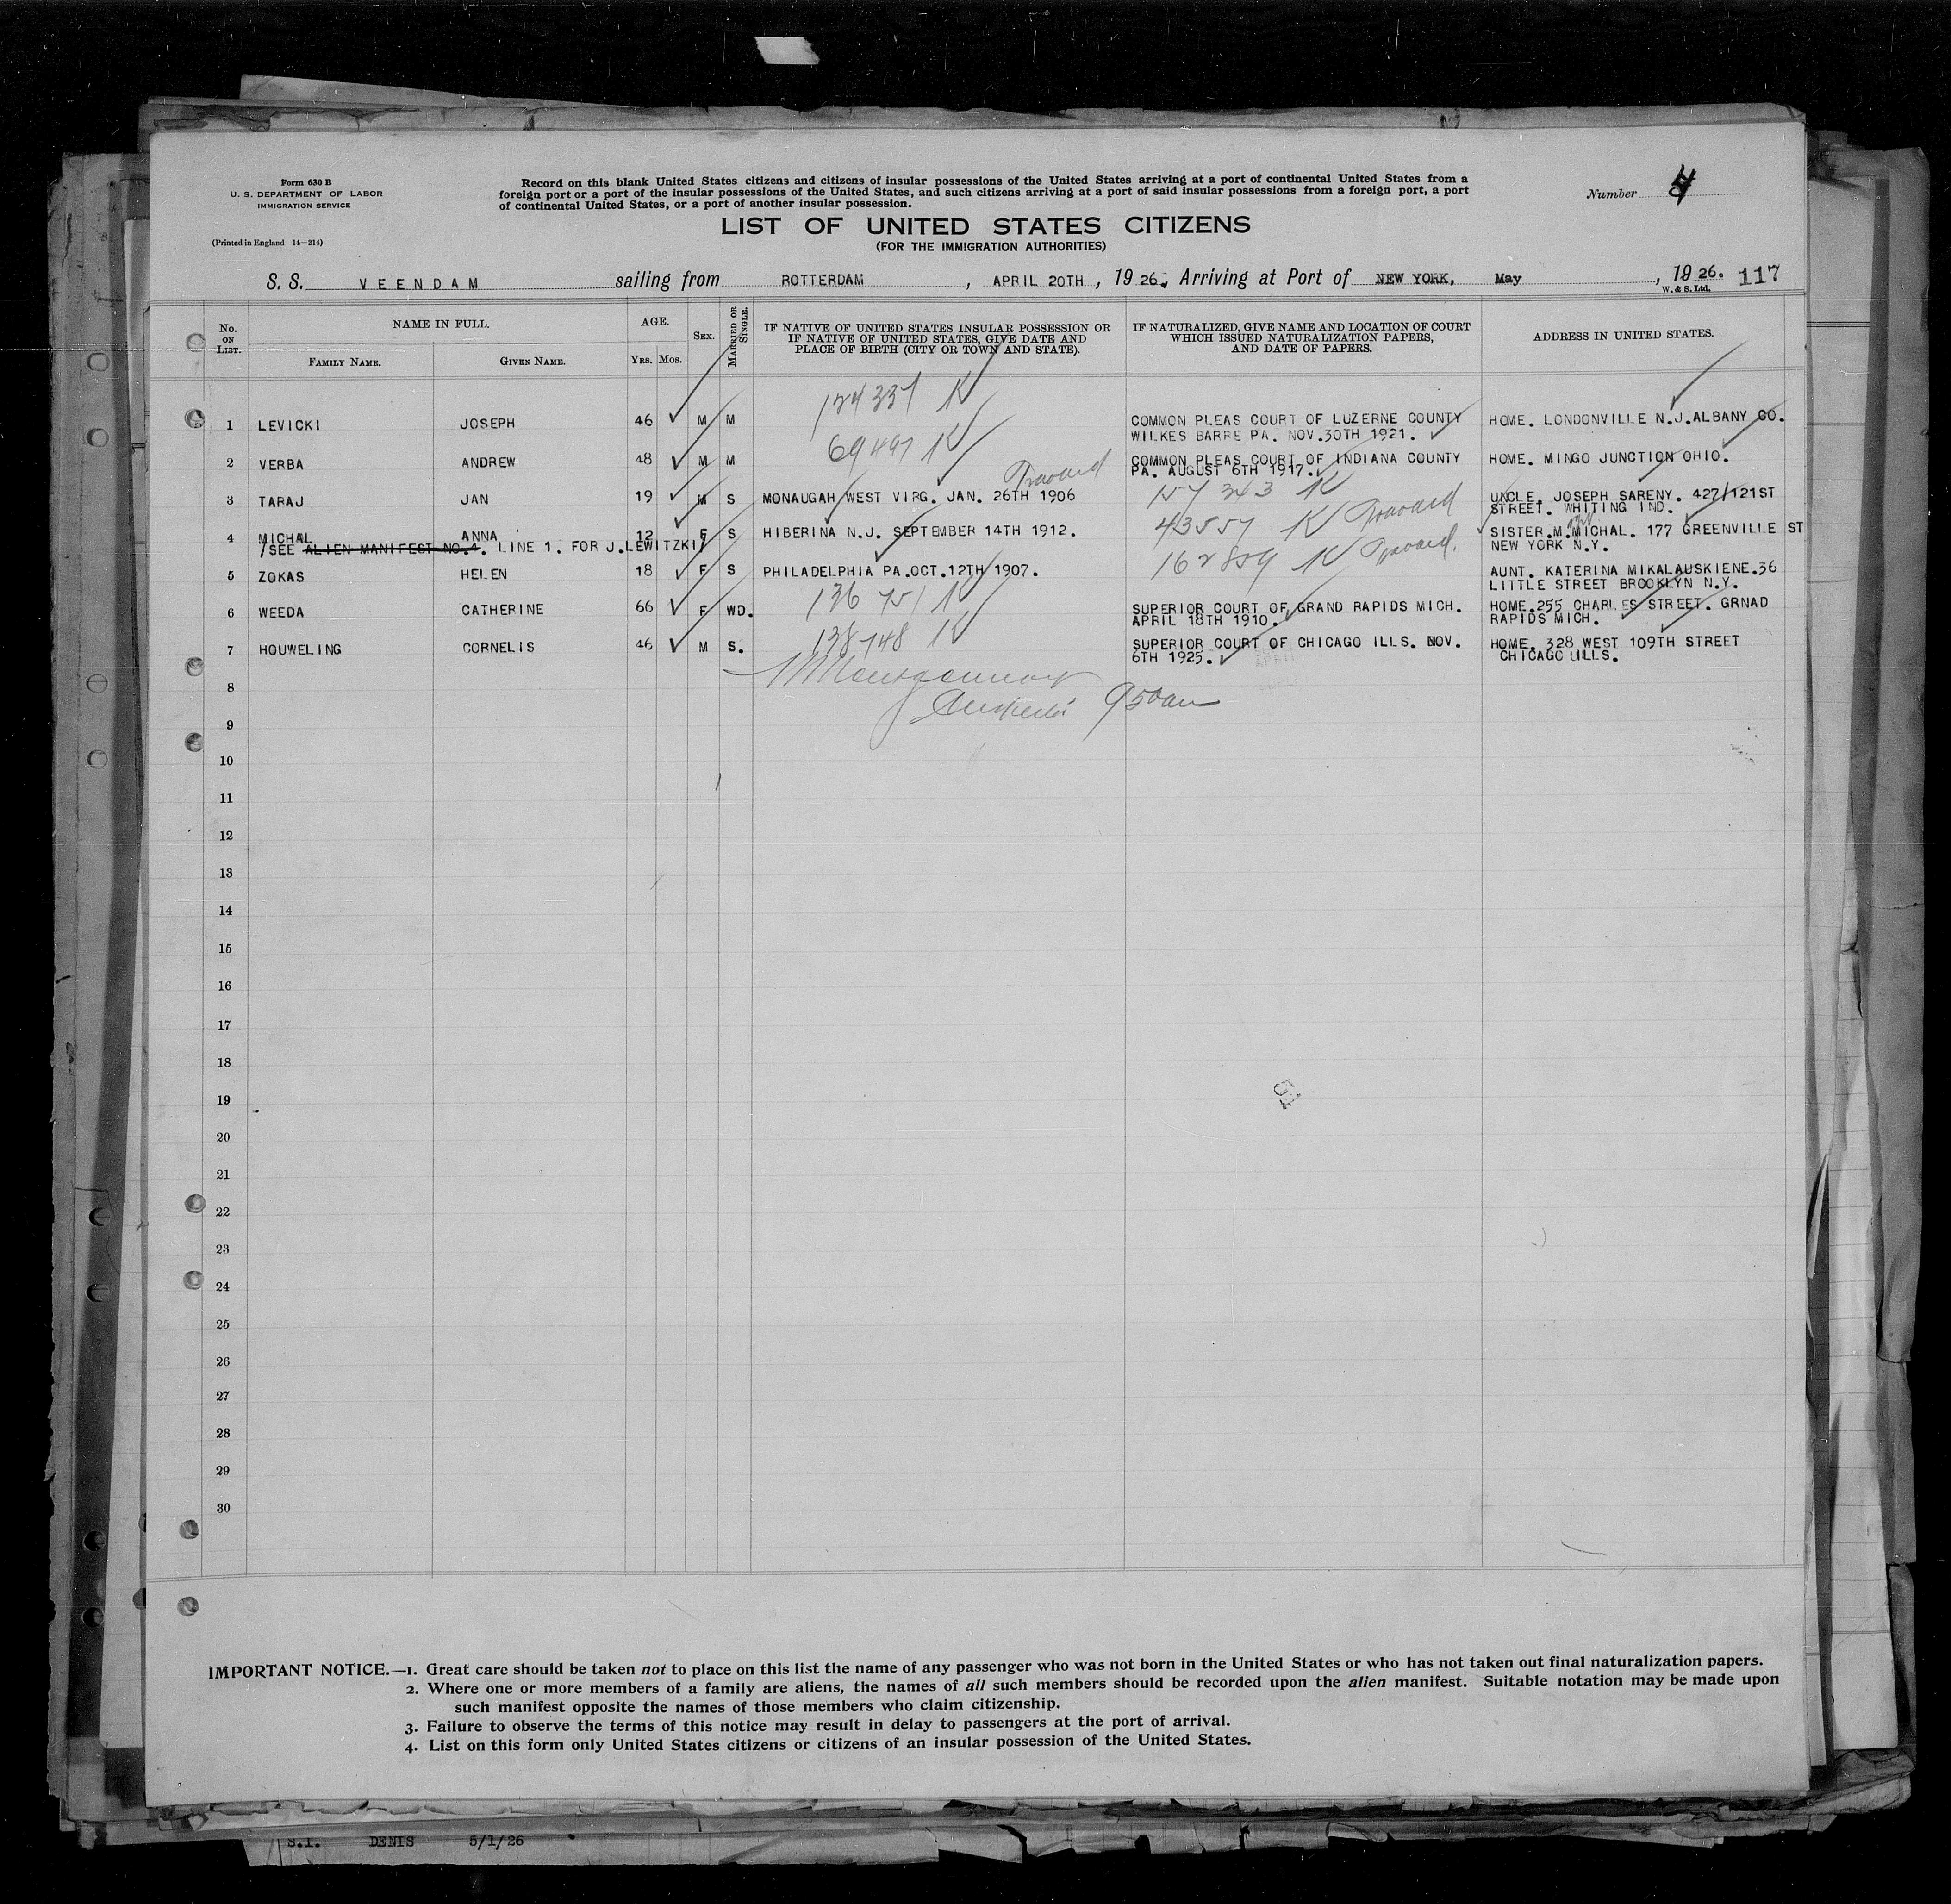 Form 630 B
U. S. DEPARTMENT OF LABOR
IMMIGRATION SERVICE
(Printed in England 14—214)
Record on this blank United States citizens and citizens of insular possessions of the United States arriving at a port of continental United States from a
foreign port or a port of the insular possessions of the United States, and such citizens arriving at a port of said insular possessions from a foreign port, a port
of continental United States, or a port of another insular possession.
Number 4
LIST OF UNITED STATES CITIZENS
(FOR THE IMMIGRATION AUTHORITIES)
S. S. VEENDAM sailing from ROTTERDAM, APRIL 20TH, 1926. Arriving at Port of NEW YORK, May, 1926. 117
W. & S. Ltd.
No. ON LIST.
NAME IN FULL.
FAMILY NAME. GIVEN NAME.
AGE.
YRS. MOS.
SEX.
MARRIED OR SINGLE.
IF NATIVE OF UNITED STATES INSULAR POSSESSION OR
IF NATIVE OF UNITED STATES, GIVE DATE AND
PLACE OF BIRTH (CITY OR TOWN AND STATE).
IF NATURALIZED, GIVE NAME AND LOCATION OF COURT
WHICH ISSUED NATURALIZATION PAPERS,
AND DATE OF PAPERS.
ADDRESS IN UNITED STATES.
1 LEVICKI JOSEPH 46 M M COMMON PLEAS COURT OF LUZERNE COUNTY HOME. LONDONVILLE N.J.ALBANY CO.
WILKES BARRE PA. NOV.30TH 1921.
2 VERBA ANDREW 48 M M COMMON PLEAS COURT OF INDIANA COUNTY HOME. MINGO JUNCTION OHIO.
PA. AUGUST 6TH 1917.
3 TARAJ JAN 19 M S MONAUGAH WEST VIRG. JAN. 26TH 1906 UNCLE. JOSEPH SARENY. 427/121ST
STREET. WHITING IND.
4 MICHAL ANNA 12 F S HIBERINA N.J. SEPTEMBER 14TH 1912. 43557 K SISTER.M.MICHAL. 177 GREENVILLE ST
NEW YORK N.Y.
/SEE ALIEN MANIFEST NO.4. LINE 1. FOR J.LEWITZKI/
5 ZOKAS HELEN 18 F S PHILADELPHIA PA.OCT.12TH 1907. AUNT. KATERINA MIKALAUSKIENE.36
LITTLE STREET BROOKLYN N.Y.
6 WEEDA CATHERINE 66 F WD. SUPERIOR COURT OF GRAND RAPIDS MICH. HOME.255 CHARLES STREET. GRNAD
APRIL 18TH 1910. RAPIDS MICH.
7 HOUWELING CORNELIS 46 M S. 138748 K SUPERIOR COURT OF CHICAGO ILLS. NOV. HOME. 328 WEST 109TH STREET
6TH 1925. CHICAGO ILLS.
8
9
10
11
12
13
14
15
16
17
18
19
20
21
22
23
24
25
26
27
28
29
30
IMPORTANT NOTICE.—1. Great care should be taken not to place on this list the name of any passenger who was not born in the United States or who has not taken out final naturalization papers.
2. Where one or more members of a family are aliens, the names of all such members should be recorded upon the alien manifest. Suitable notation may be made upon
such manifest opposite the names of those members who claim citizenship.
3. Failure to observe the terms of this notice may result in delay to passengers at the port of arrival.
4. List on this form only United States citizens or citizens of an insular possession of the United States.
S.I. DENIS 5/1/26